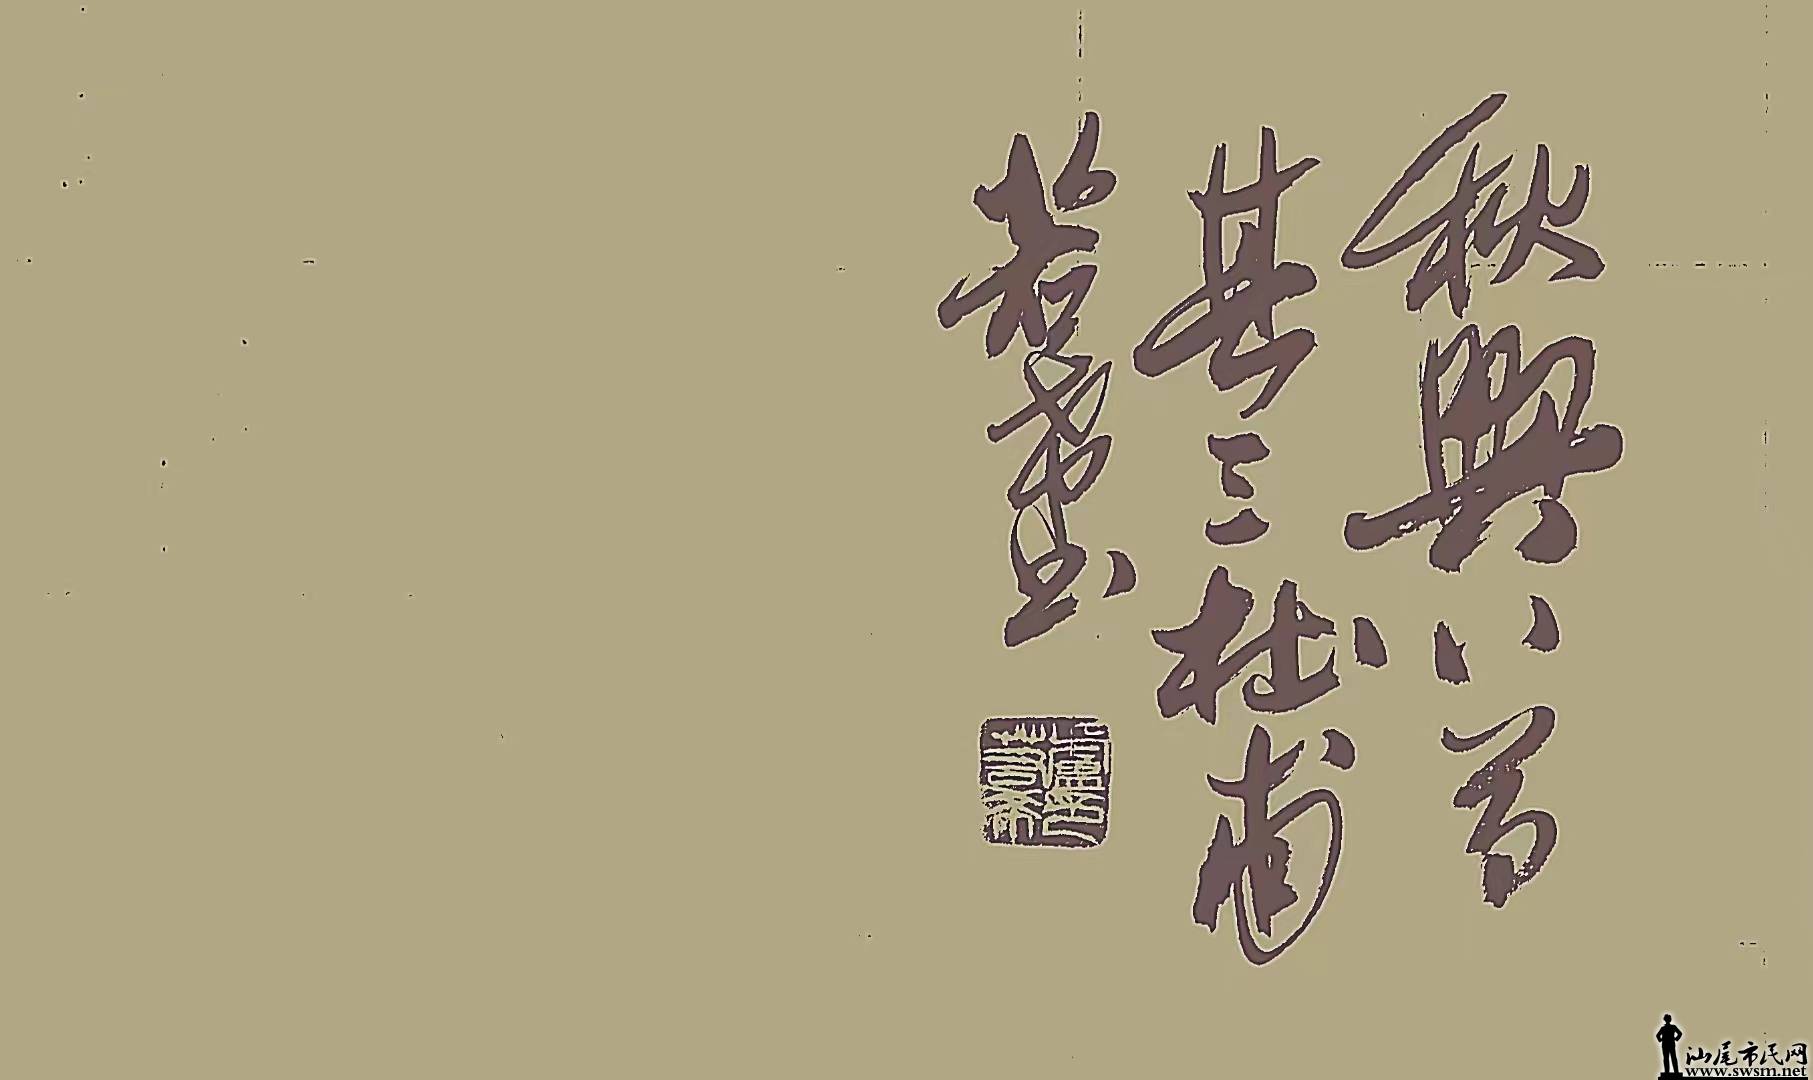 秋興八首
其三杜甫
若希書
汕尾市民网
www.swsm.net